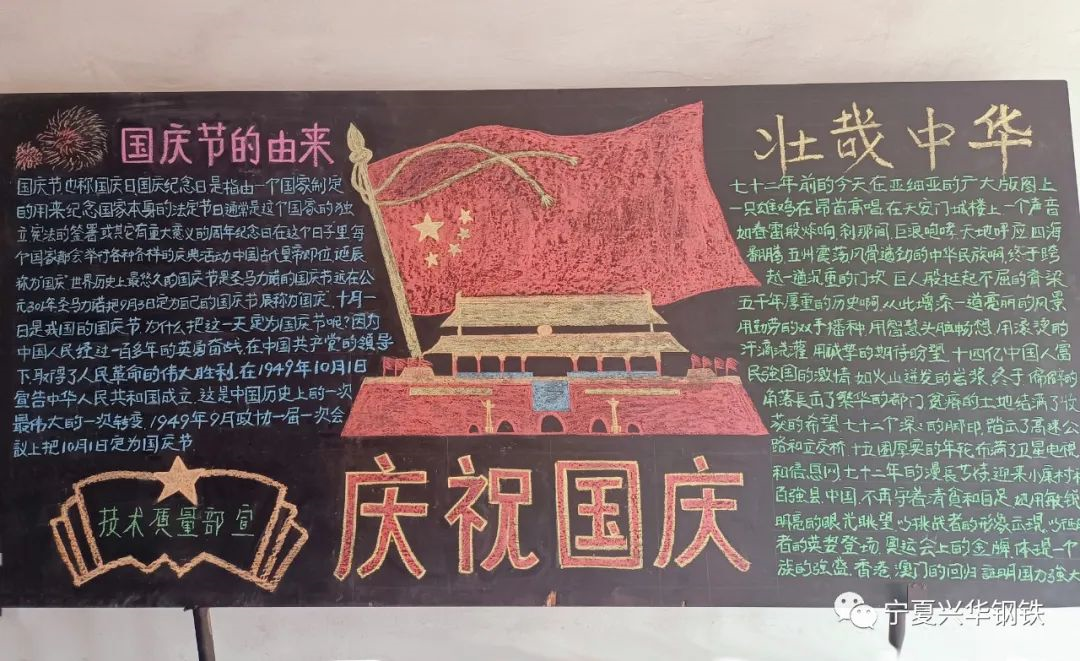 国庆节的由来
国庆节也称国庆日国庆纪念日是指由一个国家制定
的用来纪念国家本身的法定节日通常是这个国家的独
立宪法的签署或其它有重大意义的周年纪念日在这个日子里每
个国家都会举行各种各样的庆典活动中国古代皇帝即位诞辰
称为国庆世界历史上最悠久的国庆节是圣马力诺的国庆节远在公
元301年圣马力诺把9月3日定为自己的国庆节原称为国庆.十月一
日是我国的国庆节.为什么把这一天定为国庆节呢?因为
中国人民经过一百多年的英勇奋战.在中国共产党的领导
下.取得了人民革命的伟大胜利.在1949年10月1日
宣告中华人民共和国成立.这是中国历史上的一次
最伟大的一次转变.1949年9月政协一届一次会
议上把10月1日定为国庆节.
技术质量部宣
庆祝国庆
壮哉中华
七十二年前的今天在亚细亚的广大版图上
一只雄鸡在昂首高唱.在天安门城楼上.一个声音
如春雷般炸响.刹那间.巨浪咆哮.大地呼应.四海
翻腾.五州震荡.风骨遒劲的中华民族啊.终于跨
越一道沉重的门坎.巨人般挺起不屈的脊梁
五千年厚重的历史啊.从此增添一道亮丽的风景
用勤劳的双手播种.用智慧头脑畅想.用滚烫的
汗滴浇灌.用诚挚的期待盼望.十四亿中国人富
民强国的激情.如火山迸发的岩浆.终于.偏僻的
角落长出了繁华的都门.贫瘠的土地结满了收
获的希望.七十二个深深的脚印.踏示了高速公
路和立交桥.十五圈厚实的年轮.布满了卫星电视
和信息网.七十二年的漫长苦情.迎来小康村和
百强县.中国.不再守着清贫和自足.她用敏锐
明亮的眼光眺望.当挑战者的形象
者的英姿登场.奥运会上的金牌.体现一个
族的强盛.香港.澳门的回归.证明国力强大
宁夏兴华钢铁